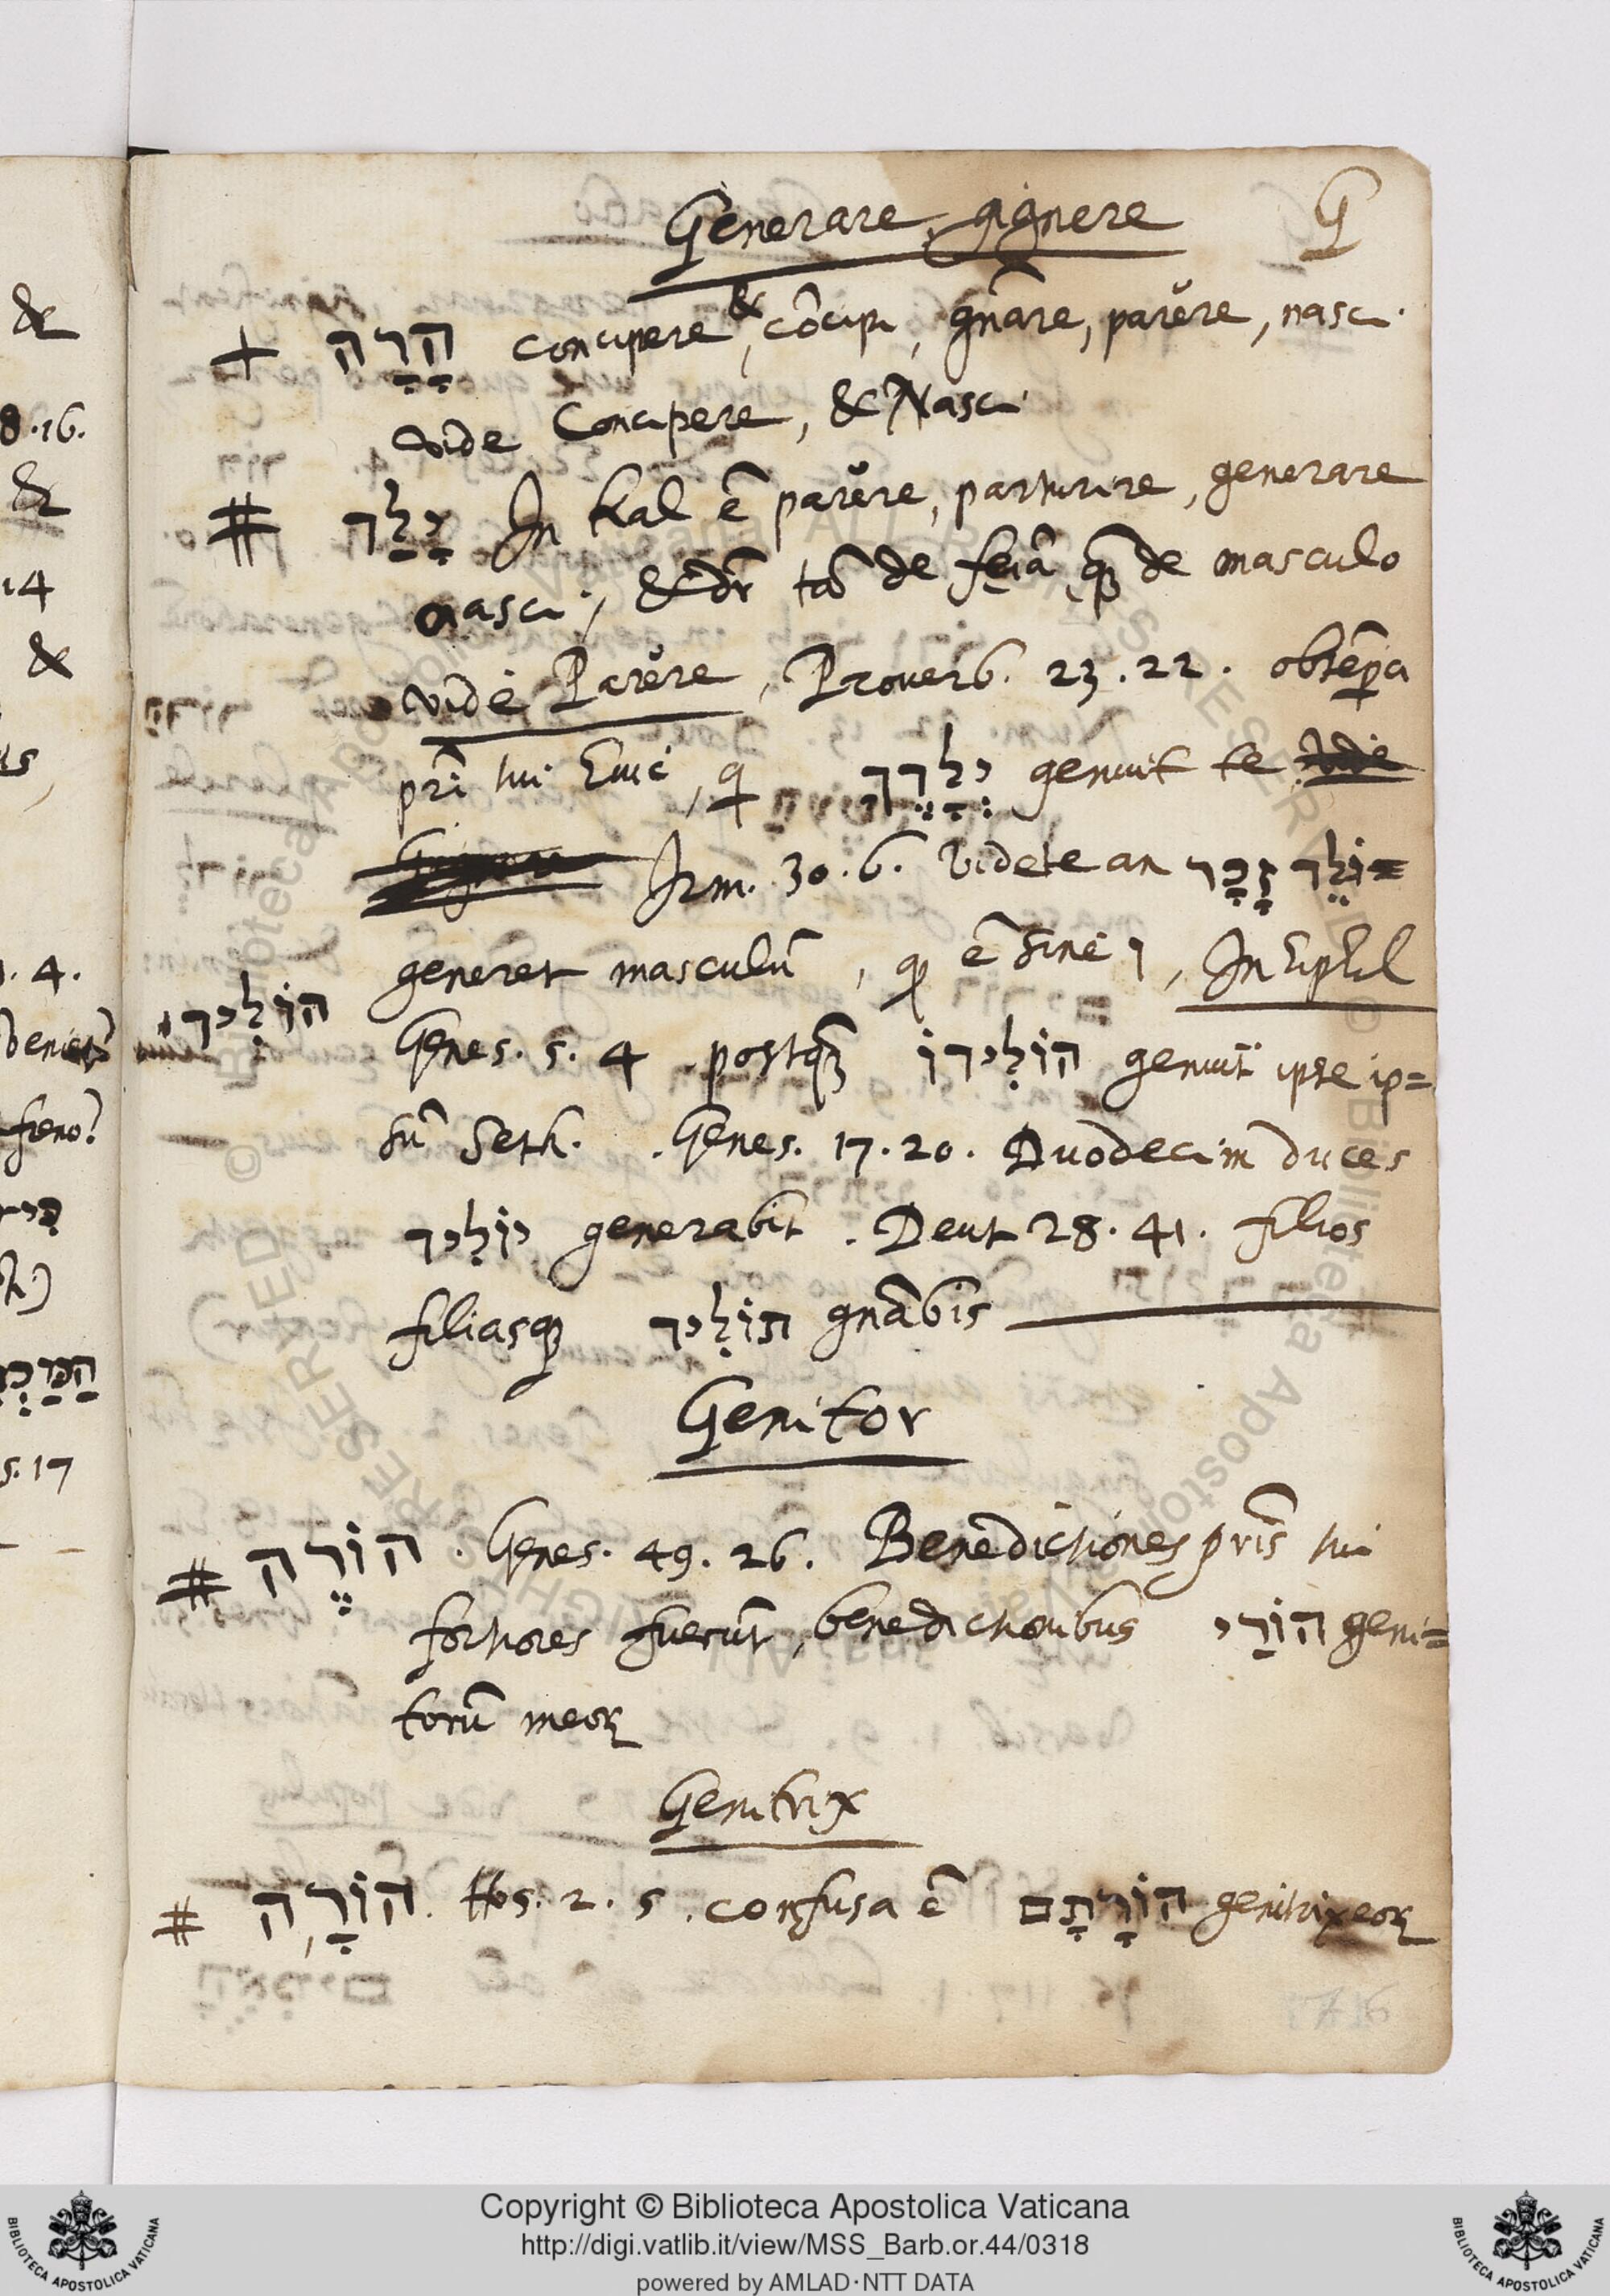 &
8.16.
&
14
&
us,
1.4.
feno?
5.17
Generare, gignere G
+ הָרָה concipere, & cõcipi, gñare, parĕre, nasci.
vide Concipere, & Nasci
# יָלַד In kal ẽ parĕre, parturire, generare
nasci, & dr̃ tã de feiã q̃ de masculo
vide Parĕre, Proverb. 23.22. obtẽpa
pri tui huic, q יְלָדֶךָ genuit te
Irm. 30.6. Videte an יֹולֵד זָכָר =
generet masculũ, q ẽ sine ו, In hiphil
הֹולִיד Genes. 5.4 postq̃ הֹולִידֹו genuit ipse ip=
sũ Seth. Genes. 17.20. Duodecim duces
יֹולִיד generabit. Deut 28.41. filios
filiasq; תֹולִיד gnãbis
Genitor
# הֹורֶה. Genes. 49.26. Benedictiones pris̃ tui
fortiores fuerũt, benedictionibus הֹורַי geni=
torũ meoꝝ
Genitrix
# הֹורָה. Hos. 2.5. confusa ẽ הֹורָתָם genitrix eoꝝ
Copyright © Biblioteca Apostolica Vaticana
http://digi.vatlib.it/view/MSS_Barb.or.44/0318
powered by AMLAD·NTT DATA